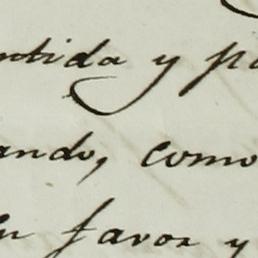 ntida y pa
ando, como
su favor y